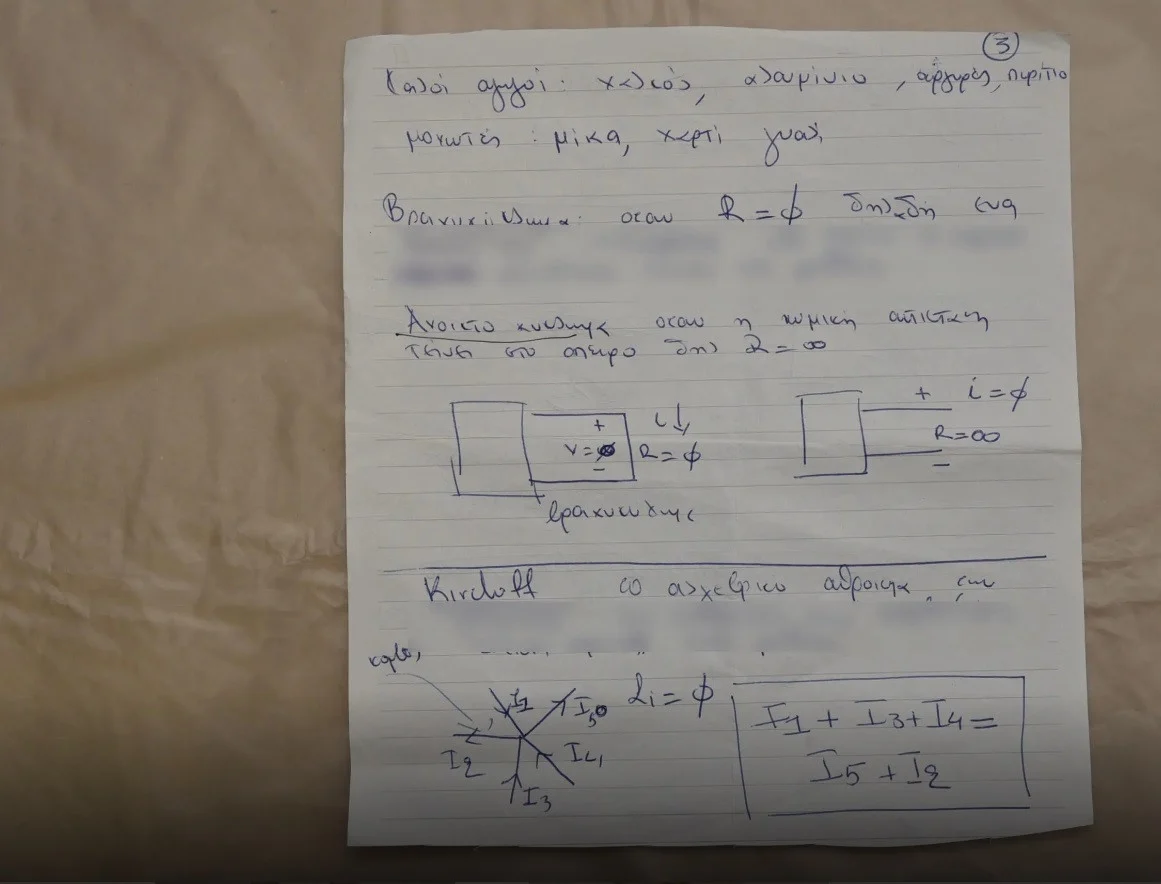 3
Καλοί αγωγοί: χαλκός, αλουμίνιο, άργυρος,
μονωτές: μίκα, χαρτί γυαλί
Βραχυκύκλωμα: οταν R=φ δηλαδή ενα
Ανοικτο κυκλωμα οταν η ωμική αντισταση
τεινει στο απειρο δηλ R=∞
+ i=φ
+ i
V=φ R=φ R=∞
- -
βραχυκυκλωμα
Kirchoff το αλγεβρικο αθροισμα
I1 I5 Σi=φ
I1 + I3+I4=
I2 I4
I5+I2
I3